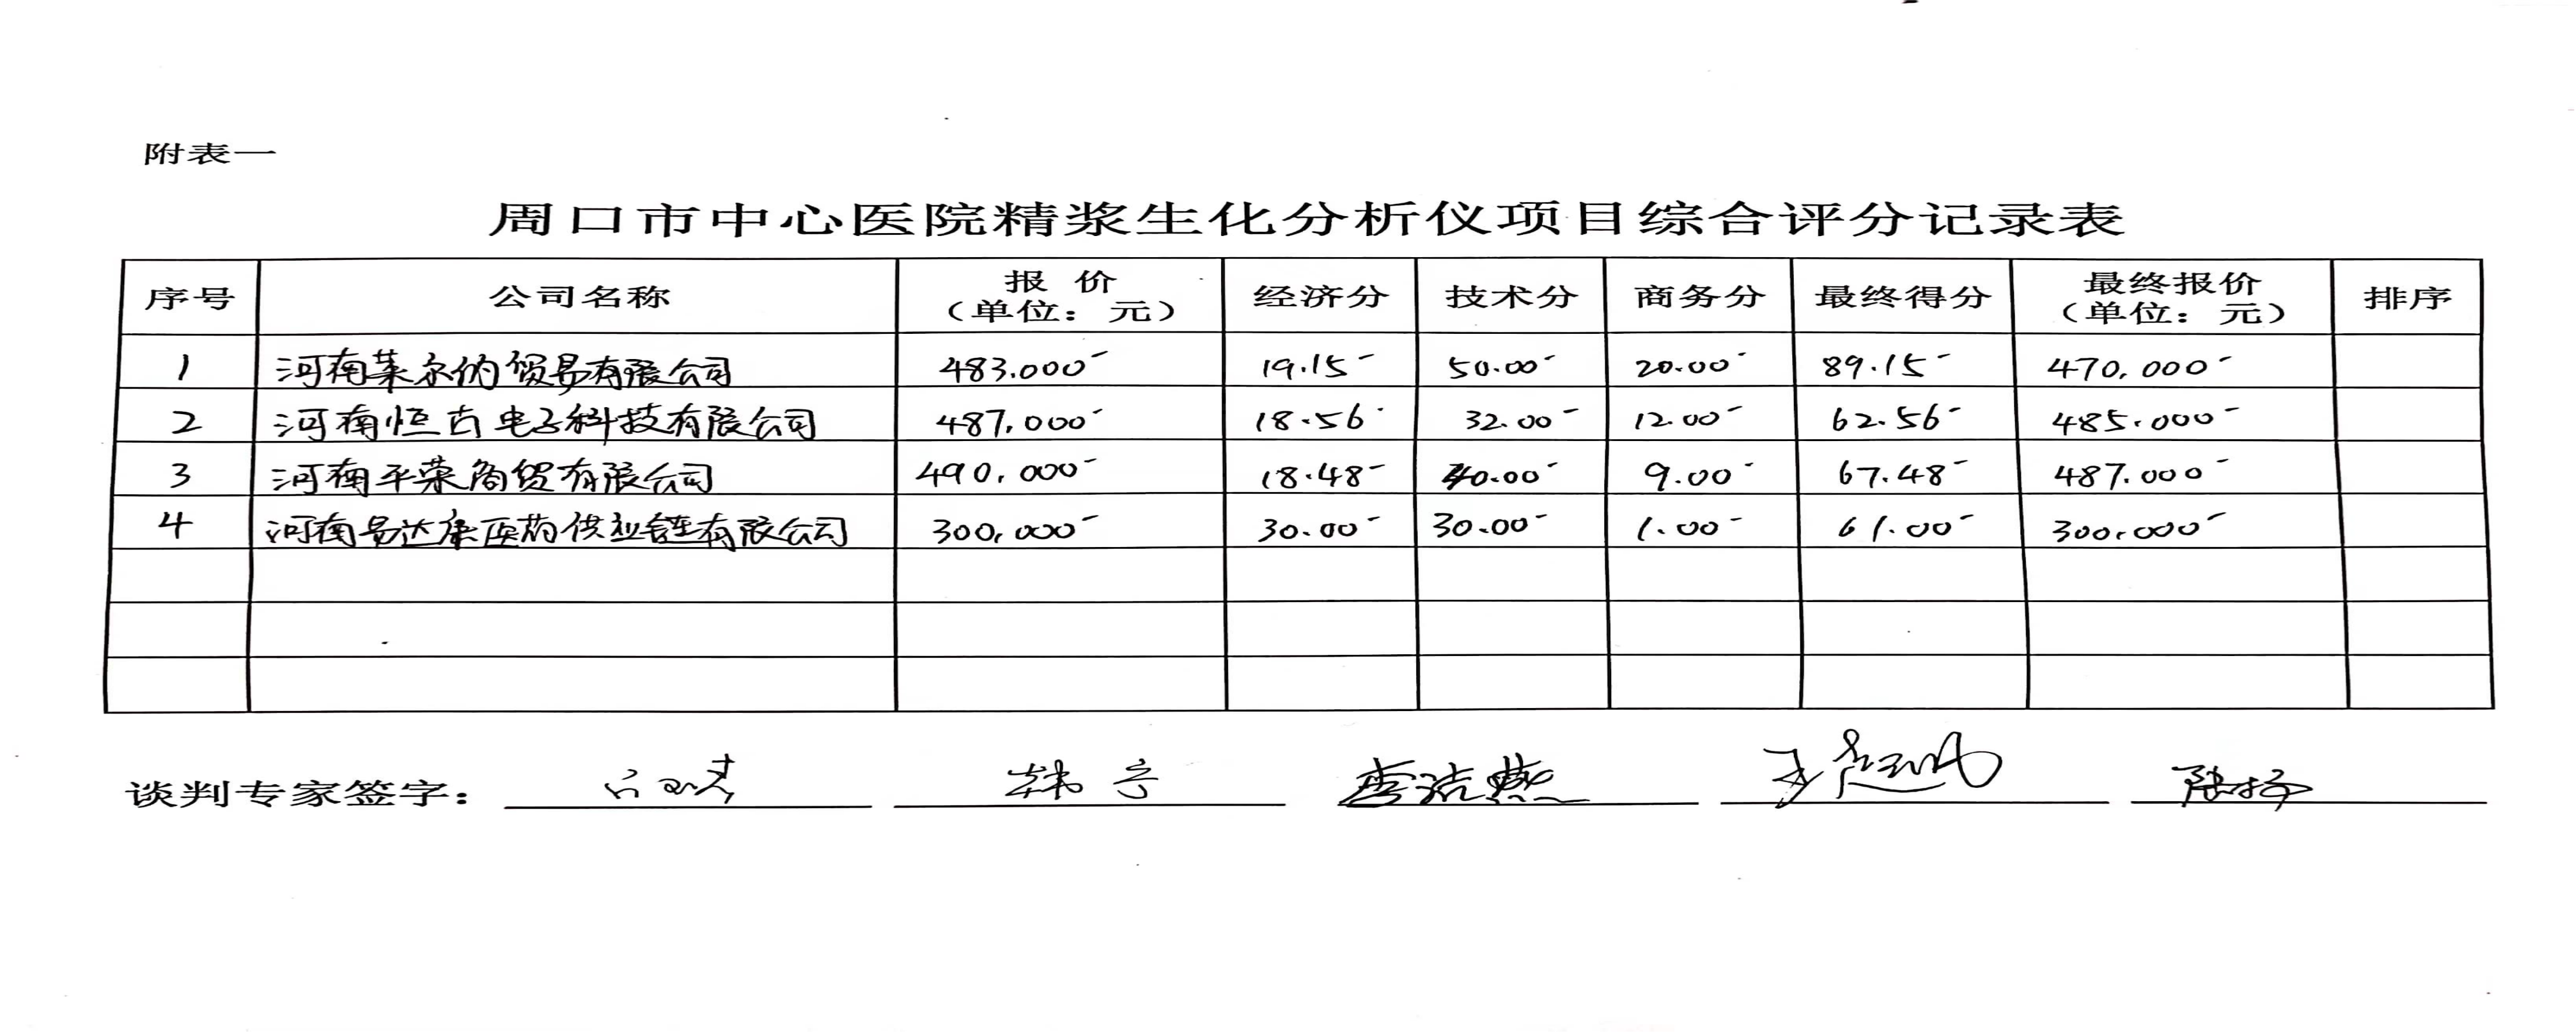 附表一
周口市中心医院精浆生化分析仪项目综合评分记录表
序号 公司名称 报 价（单位：元） 经济分 技术分 商务分 最终得分 最终报价（单位：元） 排序
1 河南莱尔的贸易有限公司 483.000 19.15 50.00 20.00 89.15 470,000
2 河南恒吉电子科技有限公司 487,000 18.56 32.00 12.00 62.56 485,000
3 河南平荣商贸有限公司 490,000 18.48 40.00 9.00 67.48 487.000
4 河南易达康医药供应链有限公司 300,000 30.00 30.00 1.00 61.00 300,000
谈判专家签字： 韩宁 李洁燕 陆扬